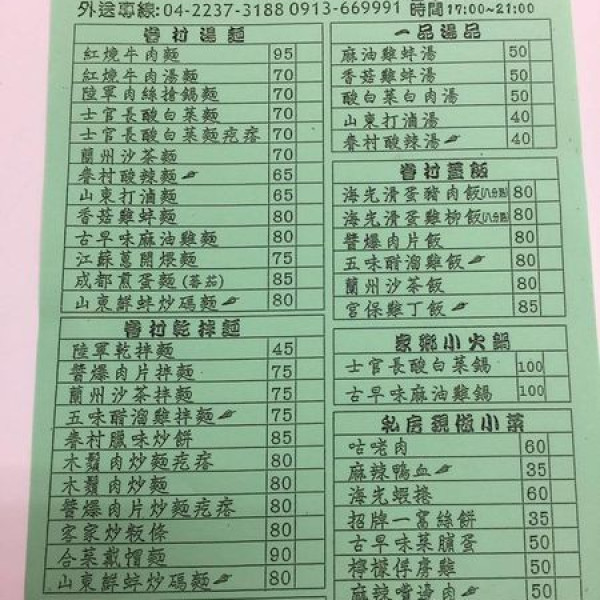 外送專線:04-2237-3188 0913-669991 時間17:00~21:00
眷村湯麵
紅燒牛肉麵 95
紅燒牛肉湯麵 70
陸軍肉絲搶鍋麵 70
士官長酸白菜麵 70
士官長酸白菜麵疙瘩 70
蘭州沙茶麵 70
眷村酸辣麵 65
山東打滷麵 65
香菇雞蚌麵 80
古早味麻油雞麵 80
江蘇蔥開煨麵 75
成都煎蛋麵(蕃茄) 85
山東鮮蚌炒碼麵 80
眷村乾拌麵
陸軍乾拌麵 45
醬爆肉片拌麵 75
蘭州沙茶拌麵 75
五味醋溜雞拌麵 75
眷村臘味炒餅 85
木鬚肉炒麵疙瘩 80
木鬚肉炒麵 80
醬爆肉片炒麵疙瘩 80
客家炒粄條 80
合菜戴帽麵 90
山東鮮蚌炒碼麵 80
一品湯品
麻油雞蚌湯 50
香菇雞蚌湯 50
酸白菜白肉湯 50
山東打滷湯 40
眷村酸辣湯 40
眷村蓋飯
海光滑蛋豬肉飯(八分熟) 80
海光滑蛋雞柳飯(八分熟) 80
醬爆肉片飯 80
五味醋溜雞飯 80
蘭州沙茶飯 80
宮保雞丁飯 85
家鄉小火鍋
士官長酸白菜鍋 100
古早味麻油雞鍋 100
私房親做小菜
咕咾肉 60
麻辣鴨血 35
海光蝦捲 60
招牌一窩絲餅 35
古早味菜脯蛋 50
檸檬俘虜雞 50
麻辣嘴邊肉 50